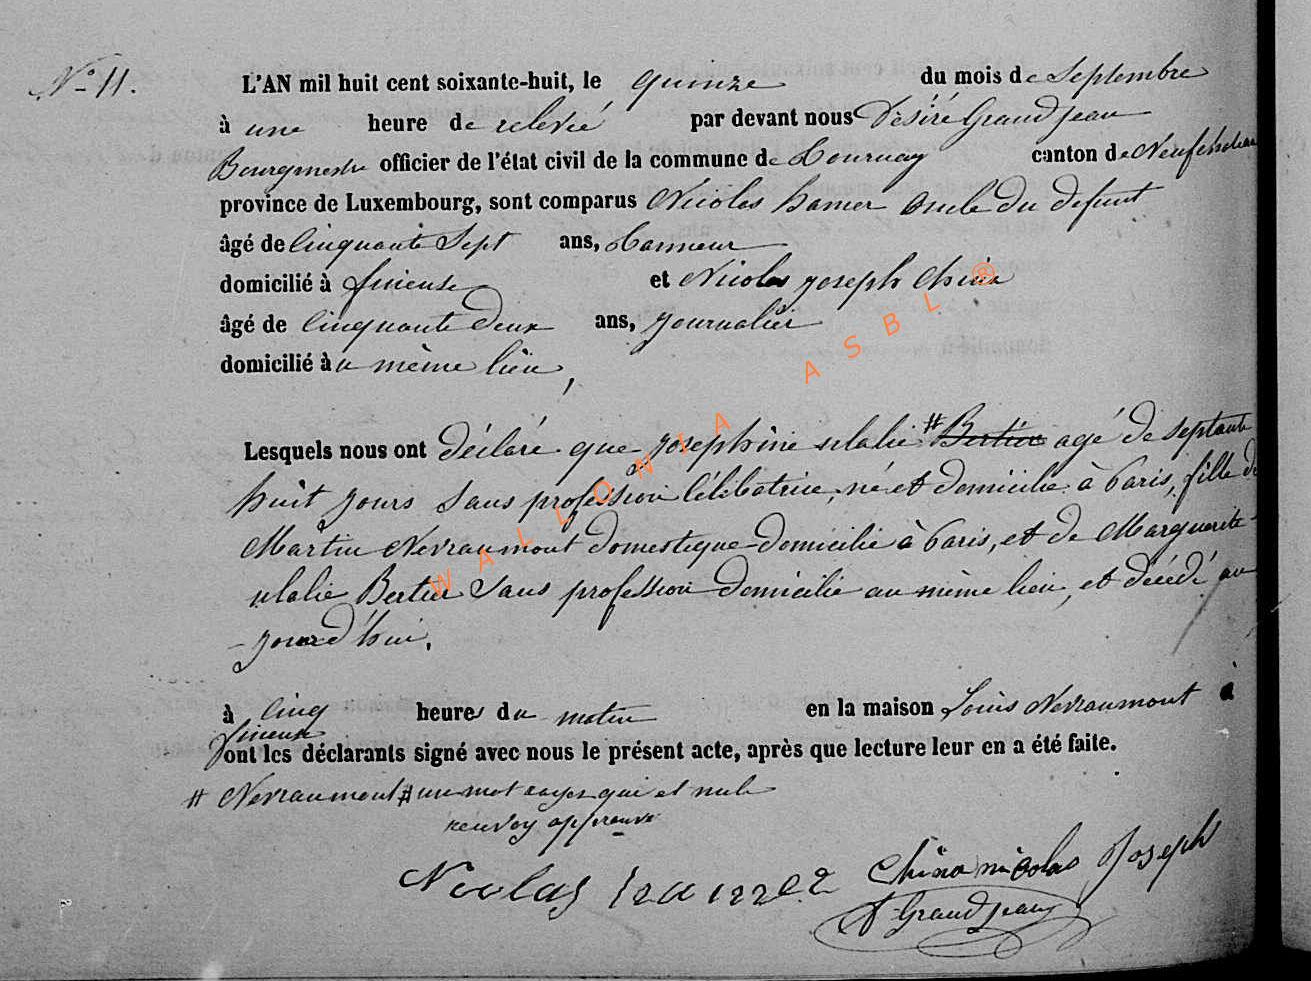 N° 11.
L'AN mil huit cent soixante-huit, le quinze du mois de Septembre
à une heure de relevée par devant nous Désiré Grandjean
Bourgmestre officier de l'état civil de la commune de Tournay canton de Neufchateau
province de Luxembourg, sont comparus Nicolas hamer oncle du defunt
âgé de Cinquante Sept ans,
domicilié à et Nicolas joseph China
âgé de Cinquante deux ans, journalier
domicilié au même lieu,
Lesquels nous ont déclaré que Josephine ulalie # Bertier agé de septante
huit jours Sans profession Célibatrice, né et domicilié à Paris, fille de
Martin Nevraumont domestique domicilié à Paris, et de Marguerite
ulalie Bertier Sans profession domicilié au même lieu, et décédé au
jourd'hui.
à Cinq heures du matin en la maison Louis Nevraumont à
ont les déclarants signé avec nous le présent acte, après que lecture leur en a été faite.
# Nevraumont # un mot rayer qui et nule
renvoy approuvé
Nicolas hamer China nicolas Joseph
D Grandjean
WALLONIA ASBL ®